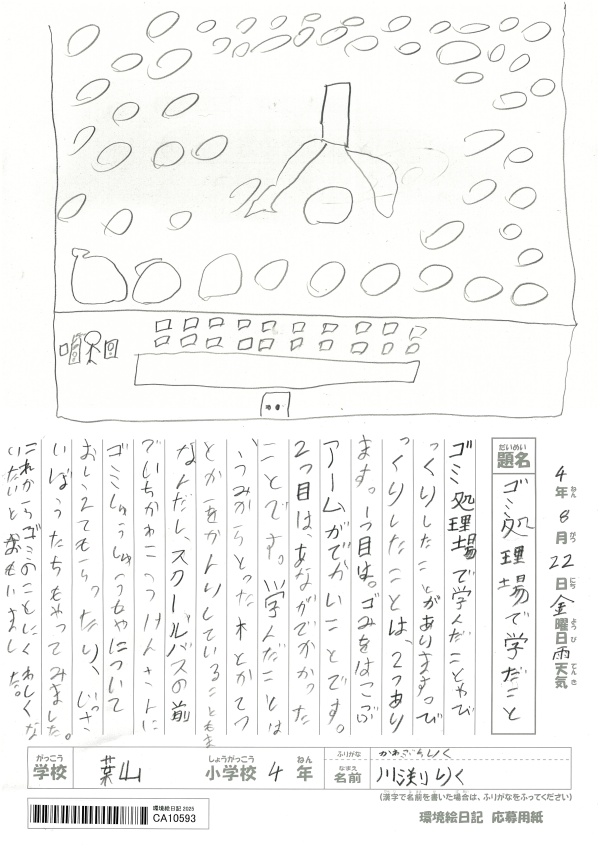 4年 8月22日 金曜日 雨天気
ねん がつ にち ようび てんき
だいめい
題名
ゴミ処理場で学だこと
ゴミ処理場で学んだことやび
っくりしたことがあります。び
っくりしたことは、2つあり
ます。1つ目は。ゴみをはこぶ
アームがでかいことです。
2つ目は、あながでかかった
ことです。学んだことは
、うみからとった木とかてつ
とかをかんりしていることもま
なんだし、スクールバスの前
ゴミしゅうしゅうしゃについて
おしえてもらったり、じっさ
いぼうたちもやってみました。
これからゴミのことにくわしくな
りたいとおもいました。
がっこう
学校
葉山
しょうがっこう
小学校
4
ねん
年
ふりがな
なまえ
名前
りく
(漢字で名前を書いた場合は、ふりがなをふってください)
環境絵日記 2025
CA10593
環境絵日記 応募用紙